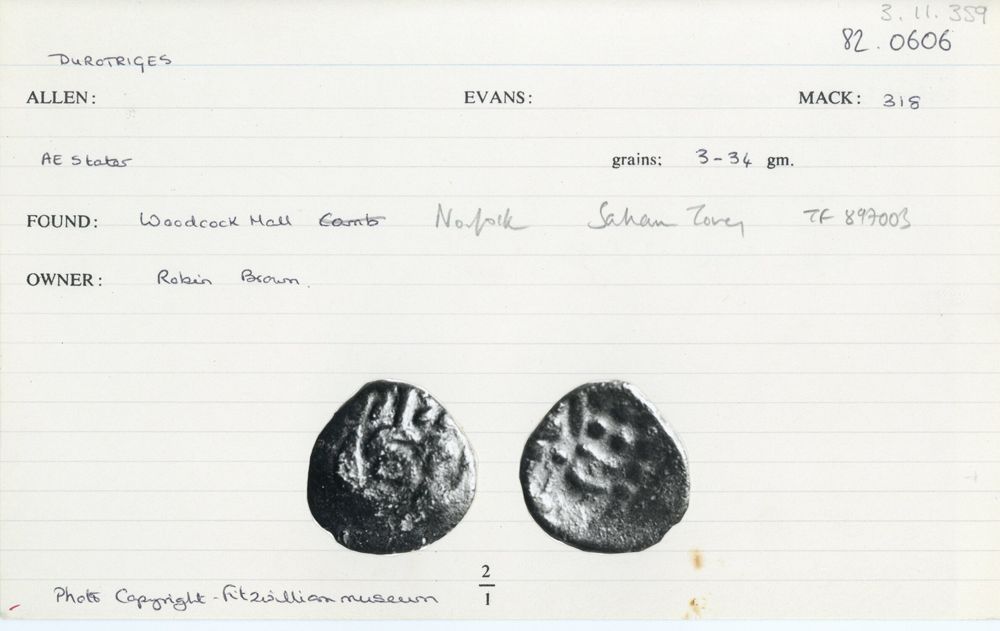 3. 11. 359
82. 0606
DUROTRIGES
ALLEN: EVANS: MACK: 318
AE Stater grains: 3-34 gm.
FOUND: Woodcock Hall Camb Norfolk Saham Toney TF 897003
OWNER: Robin Brown.
2
1
Photo Copyright - Fitzwilliam museum